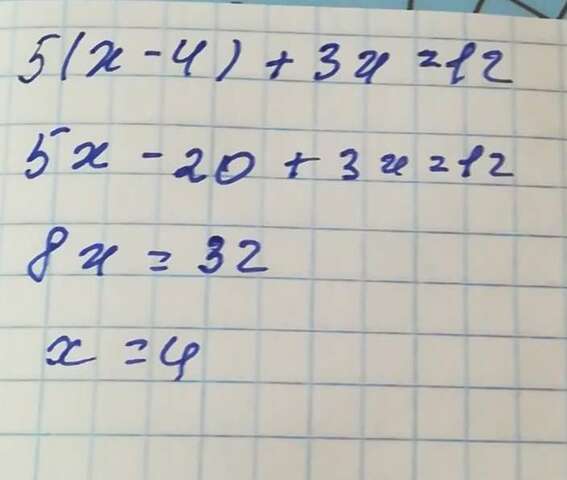 5(x - 4) + 3x = 12
5x - 20 + 3x = 12
8x = 32
x = 4